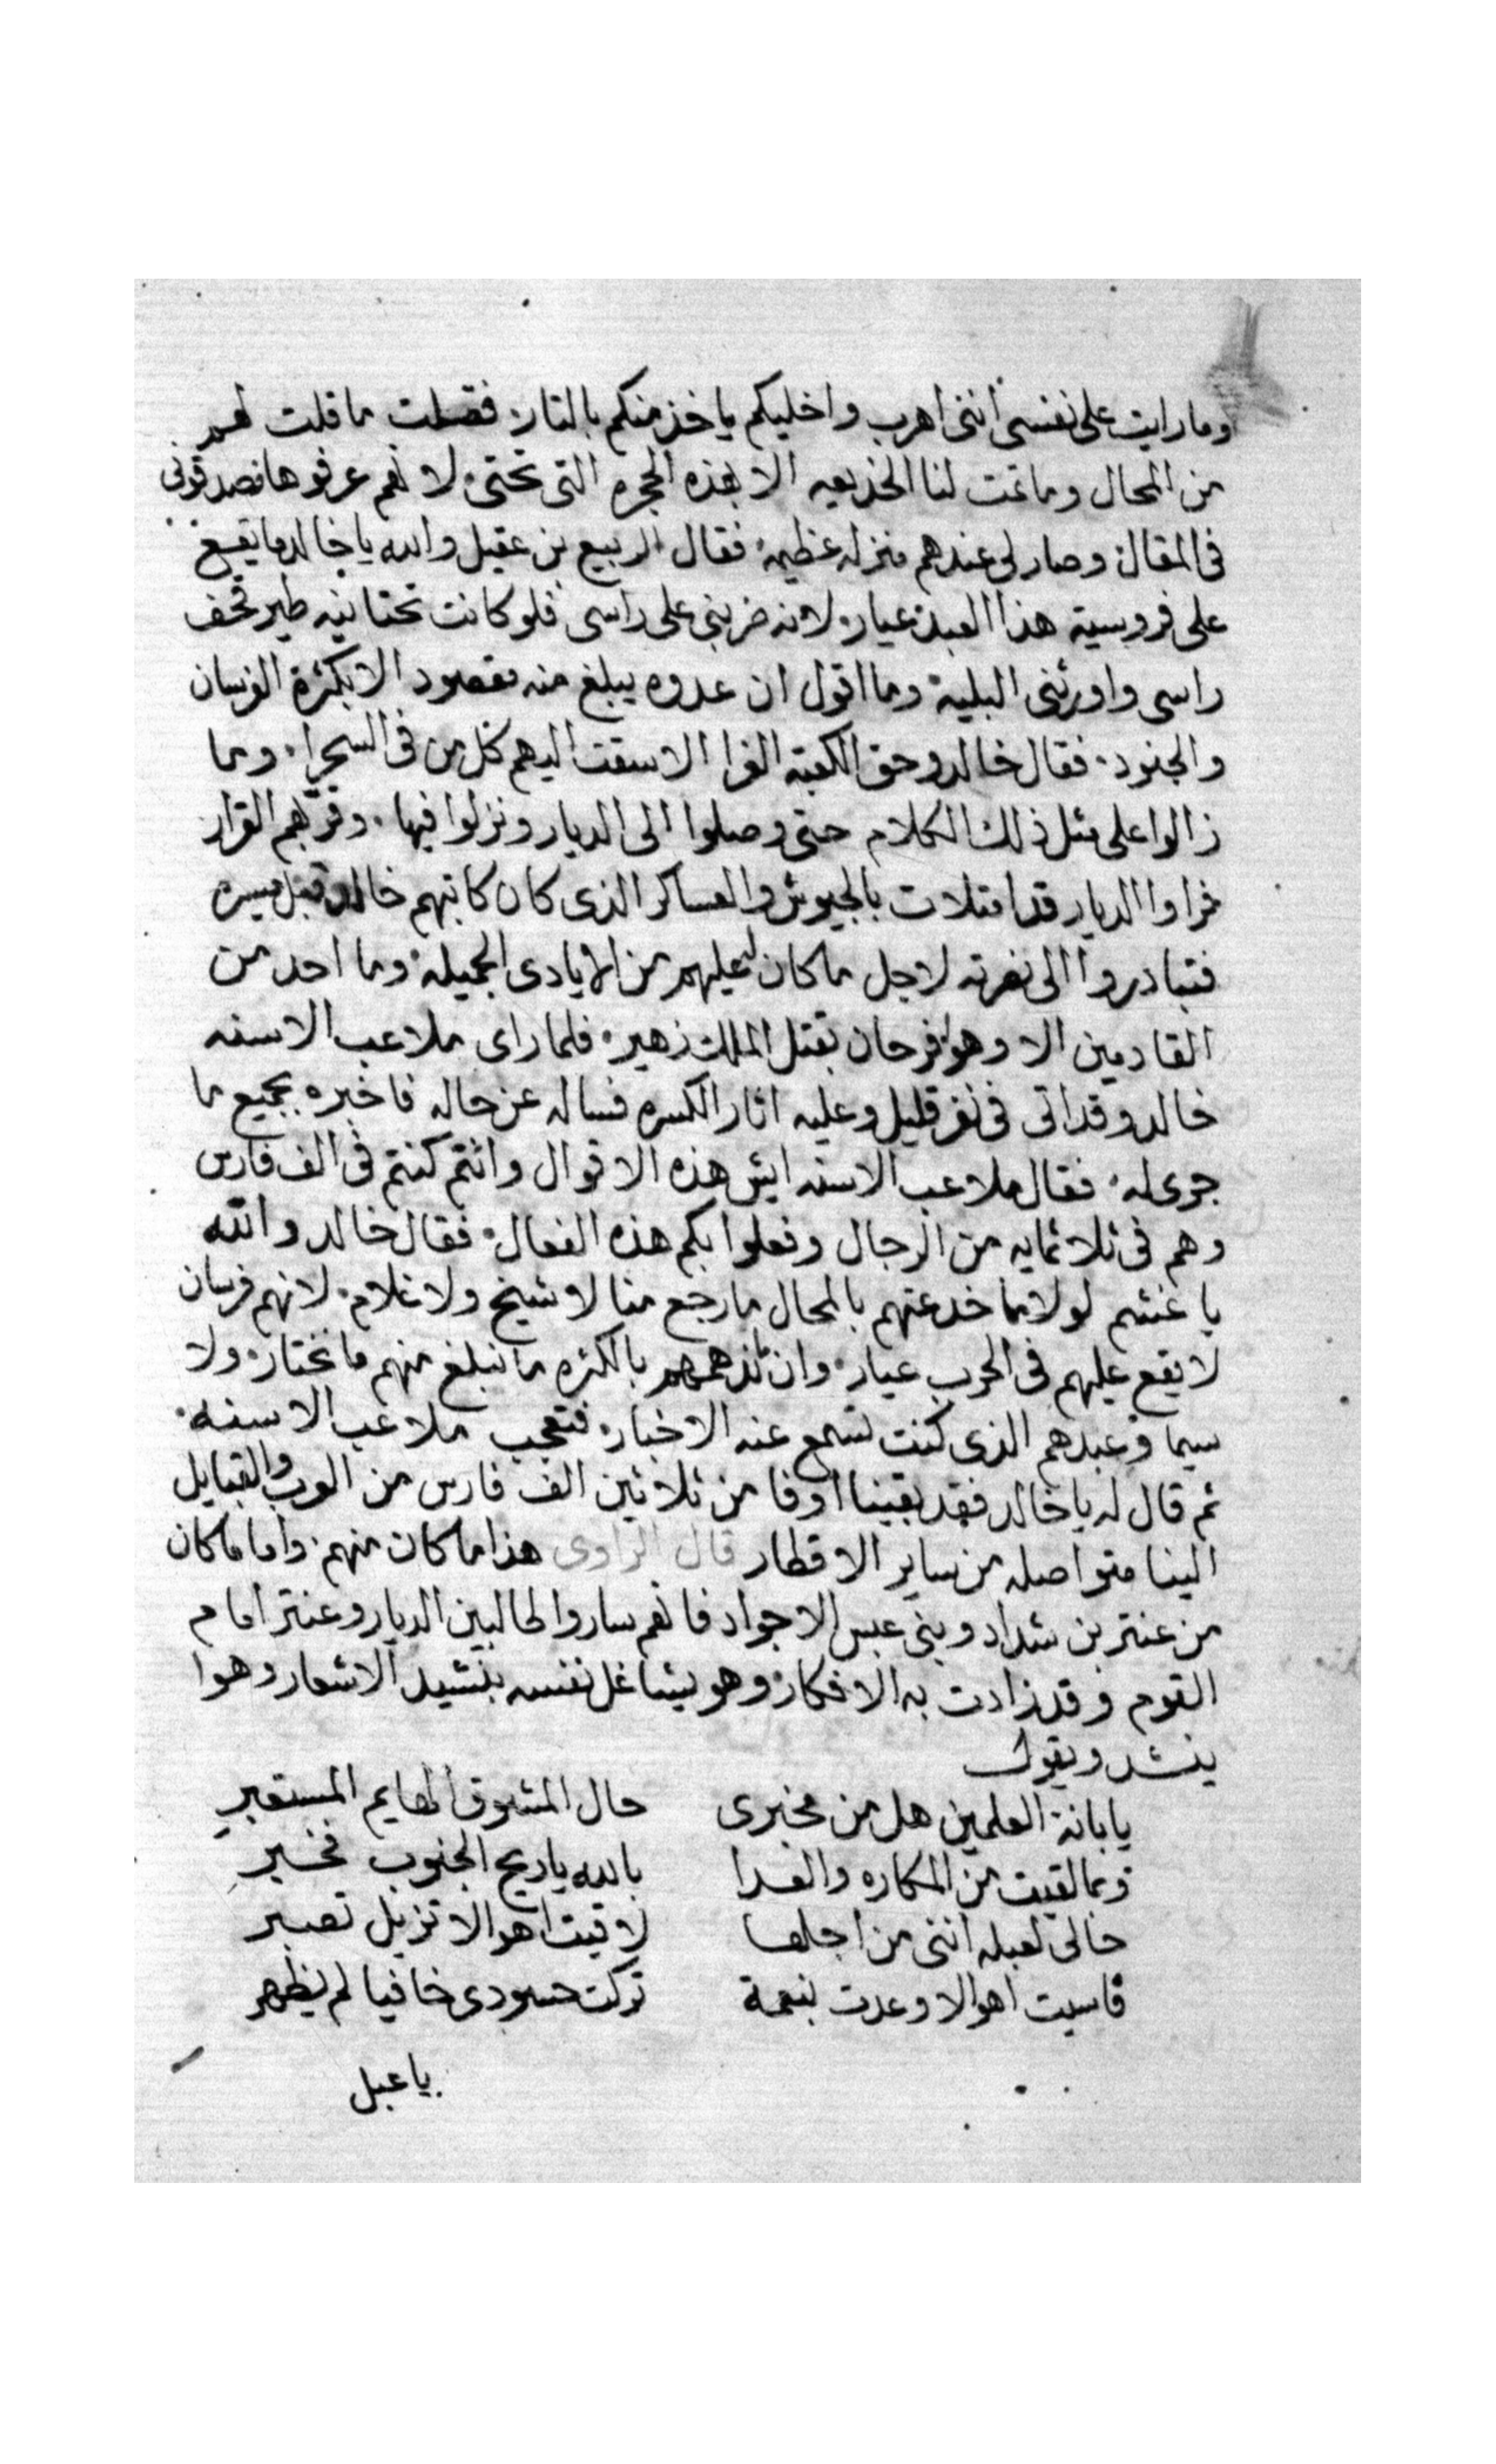 وما رايت على نفسى اننى اهرب واخليكم ياخذ منكم بالتار فقلت ما قلت لهم
من المحال وما تمت لنا الخديعه الا بهذه الحجره التى تحتى لانهم عرفوها فصدقونى
فى المقال وصار لى عندهم منزله عظيمه فقال الربيع بن عقيل والله يا خالد ما يقع
على فروسية هذا العبد عيار لانه ضربنى على راسى فلو كانت تحتانيه طير قحف
راسى واورثنى البلية وما اقول ان عدوه يبلغ منه مقصود الا بكثرة الفرسان
والجنود فقال خالد وحق الكعبة الغرا الا سقت اليهم كل من فى السحرا وما
زالوا على مثل ذلك الكلام حتى وصلوا الى الديار ونزلوا فيها وقر بهم القرار
فراوا الديار قد امتلات بالجيوش والعساكر الذى كان كاتبهم خالد قبل مسيره
فتبادروا الى نصرته لاجل ما كان له عليهم من الايادى الجميله وما احد من
القادمين الا وهو فرحان بقتل الملك زهير فلما راى ملاعب الاسنه
خالد وقد اتى فى نفر قليل وعليه اثار الكسره فساله عن حاله فاخبره بجميع ما
جرى له فقال ملاعب الاسنه ايش هذه الاقوال وانتم كنتم فى الف فارس
وهم فى ثلاثمايه من الرجال وفعلوا بكم هذه الفعال فقال خالد والله
يا غشم لولا ما خدعتهم بالمحال ما رجع منا لا شيخ ولا غلام لانهم فرسان
لا يقع عليهم فى الحرب عيار وان لم بالكثره ما نبلغ منهم ما نختار ولا
سيما وعبدهم الذى كنت تسمع عنه الاخبار فتعجب ملاعب الاسنه
ثم قال له يا خالد فقد بقينا اوفا من ثلاثين الف فارس من العرب والقبايل
الينا متواصله من ساير الاقطار قال الراوى هذا ما كان منهم واما ما كان
من عنتر بن شداد وبنى عبس الاجواد فانهم ساروا طالبين الديار وعنتر امام
القوم وقد زادت به الافكار وهو يشاغل نفسه بنشيد الاشعار وهوا
ينشد ويقول
يا بانة العلمين هل من مخبرى حال المشوق الهايم المستعبر
وبما لقيت من المكاره والعدا بالله يا ريح الجنوب فخبر
حالى لعبله اننى من اجلها لاقيت اهوالا تزيل تصبر
قاسيت اهوالا وعدت بنعمة تركت حسودى خافيا لم يظهر
يا عبل